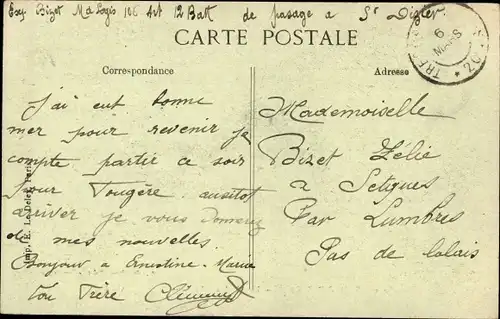 Exp. Bizet Mal Logis 106 Art 12 Batt de passage a St Dizier
CARTE POSTALE
Correspondance
Adresse
6
TRE
20
J'ai eut bonne
mer pour revenir je
compte partir ce soir
pour Fougère ausitot
arriver je vous donnerez
de mes nouvelles
Bonjour a Ernestine - Maria
ton Frère
Mademoiselle
Bizet Zélie
a Setques
Par Lumbres
Pas de Calais
Imp. E. Le Deley, Paris